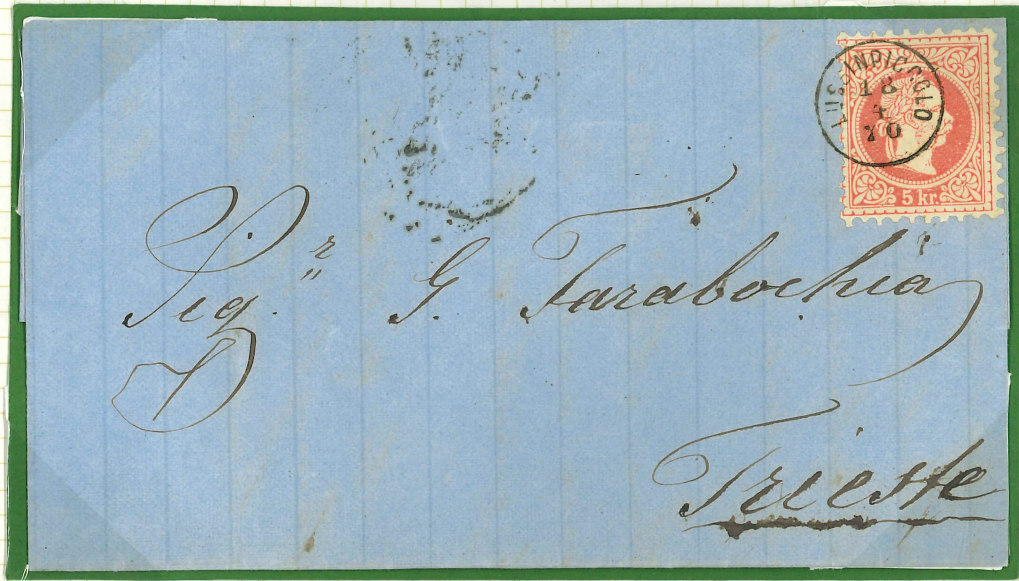 LUSSINPICCOLO
18
4
70
5 kr.
Sig.r G. Tarabochia
Trieste